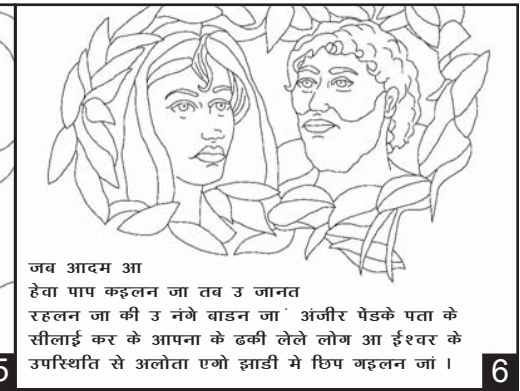 जब आदम आ
हेवा पाप कइलन जा तब उ जानत
रहलन जा की उ नंगे बाडन जा ं अंजीर पेंडके पता के
सीलाई कर के आपना के ढकी लेले लोग आ ईश्वर के
उपस्थिति से अलोता एगो झाडी मे छिप गइलन जां ।
5
6